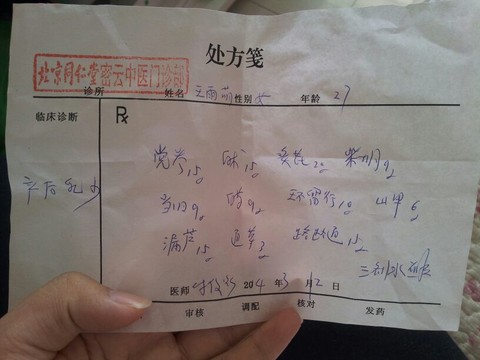 处方笺
北京同仁堂密云中医门诊部
诊所 姓名 王雨萌 性别 女 年龄 27
临床诊断 R
党参15 白术15 炙芪20 柴胡9
产后乳少
当归9 白芍9 王不留行10 山甲6
漏芦15 通草3 路路通15
三剂水煎服
医师 2014年3月12日
审核 调配 核对 发药